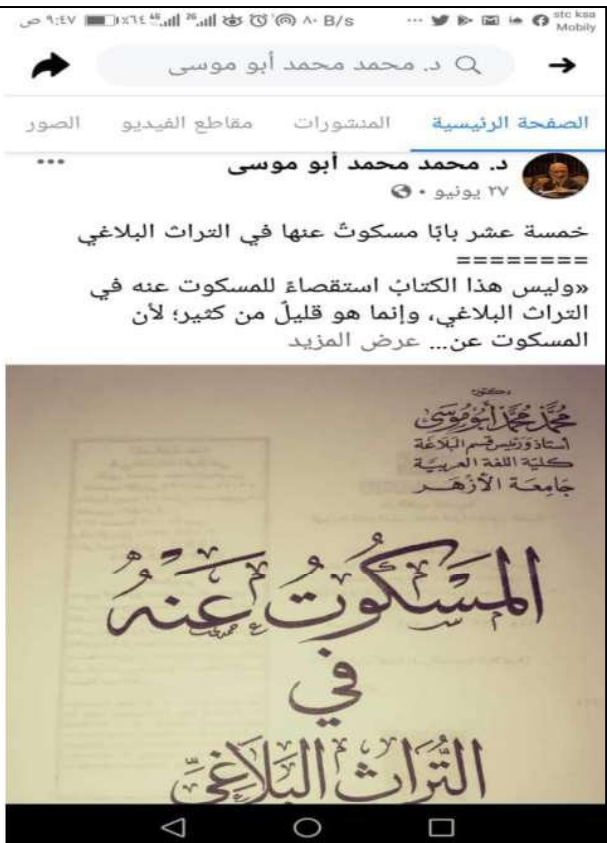 stc ksa
Mobily
B/s ٪٦٤ ٩:٤٧ ص
د. محمد محمد أبو موسى
الصفحة الرئيسية المنشورات مقاطع الفيديو الصور
د. محمد محمد أبو موسى
٢٧ يونيو
خمسة عشر بابًا مسكوتٌ عنها في التراث البلاغي
========
«وليس هذا الكتابُ استقصاءً للمسكوت عنه في
التراث البلاغي، وإنما هو قليلٌ من كثير؛ لأن
المسكوت عن... عرض المزيد
دكتور
محمد محمد أبو موسى
أستاذ ورئيس قسم البلاغة
كلية اللغة العربية
جامعة الأزهر
المَسْكُوتُ عَنْهُ
في
التُّرَاثِ البَلَاغِيِّ